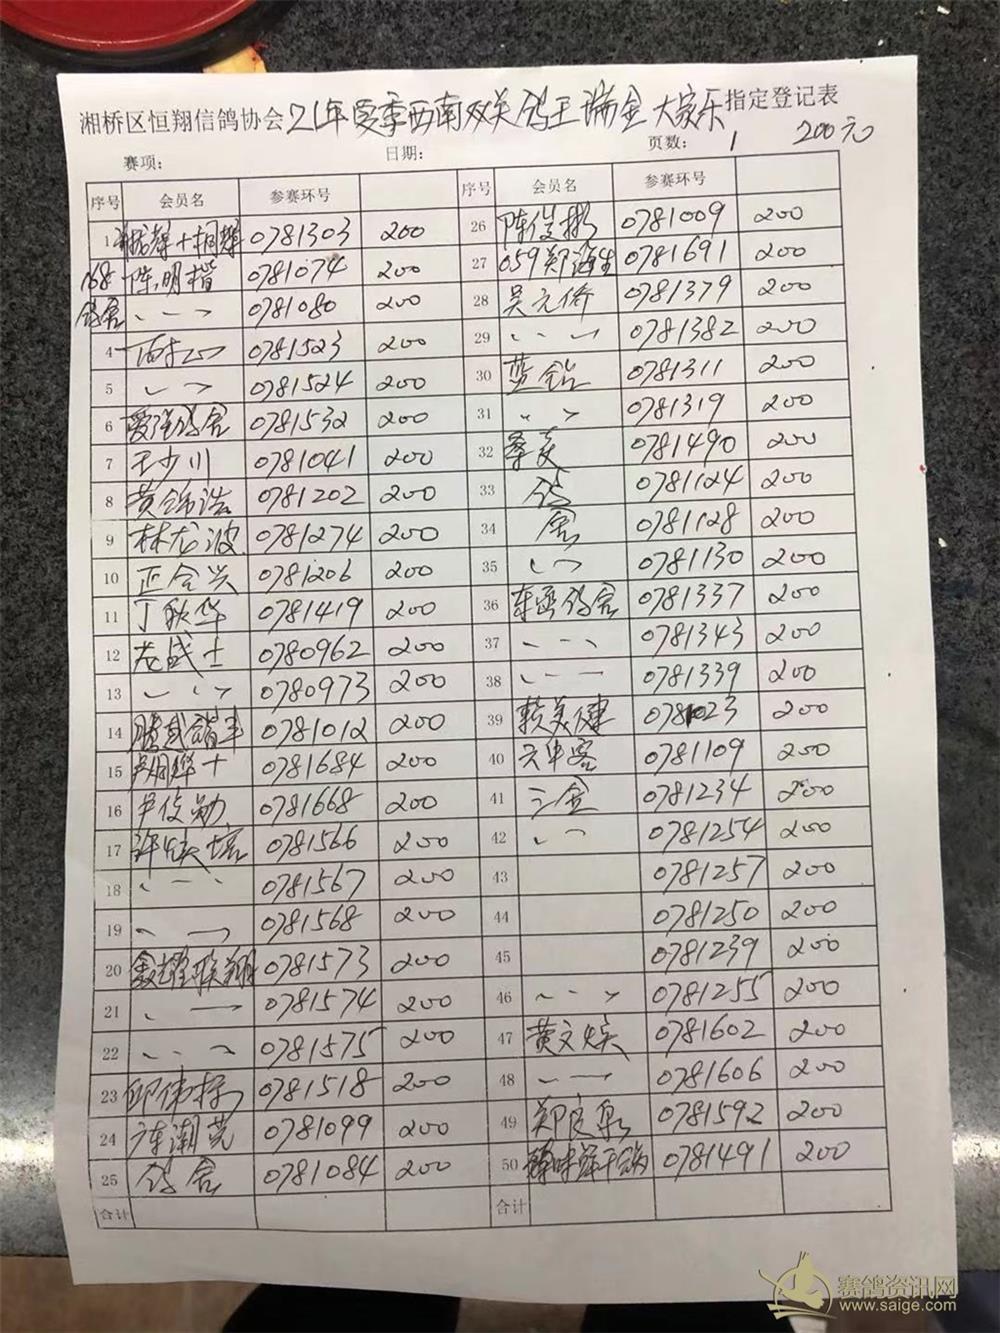 湘桥区恒翔信鸽协会21年夏季西南双关鸽王瑞金大家乐指定登记表
赛项: 日期: 页数: 1 200元
序号 会员名 参赛环号 序号 会员名 参赛环号
1 0781303 200 26 陈俊彬 0781009 200
168 陈明楷 0781074 200 27 059郑海生 0781691 200
鸽舍 0781080 200 28 吴元侨 0781379 200
4 0781523 200 29 0781382 200
5 0781524 200 30 蓝铠 0781311 200
6 爱强鸽舍 0781532 200 31 0781319 200
7 王少川 0781041 200 32 0781490 200
8 黄锦浩 0781202 200 33 鸽 0781124 200
9 林龙波 0781274 200 34 舍 0781128 200
10 正合兴 0781206 200 35 0781130 200
11 丁秋华 0781419 200 36 鸽舍 0781337 200
12 龙战士 0780962 200 37 0781343 200
13 0780973 200 38 0781339 200
14 0781012 200 39 赖美健 0781023 200
15 0781684 200 40 云中客 0781109 200
16 尹俊勋 0781668 200 41 三金 0781234 200
17 0781566 200 42 0781254 200
18 0781567 200 43 0781257 200
19 0781568 200 44 0781250 200
20 鑫耀联翔 0781573 200 45 0781239 200
21 0781574 200 46 0781255 200
22 0781575 200 47 黄文焕 0781602 200
23 0781518 200 48 0781606 200
24 0781099 200 49 郑良泉 0781592 200
25 鸽舍 0781084 200 50 0781491 200
合计 合计
赛鸽资讯网
www.saige.com